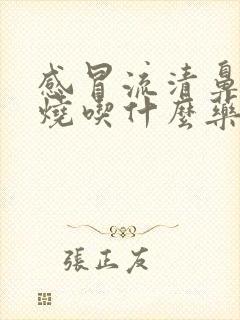 感冒流清鼻
燒喫什麼藥
張正友